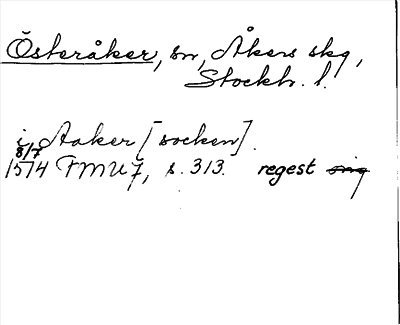 Österåker, sn, Åkers skg,
Stockh. l.
i Aaker [socken].
8/7
1574 FMU 7, s. 313. regest sig